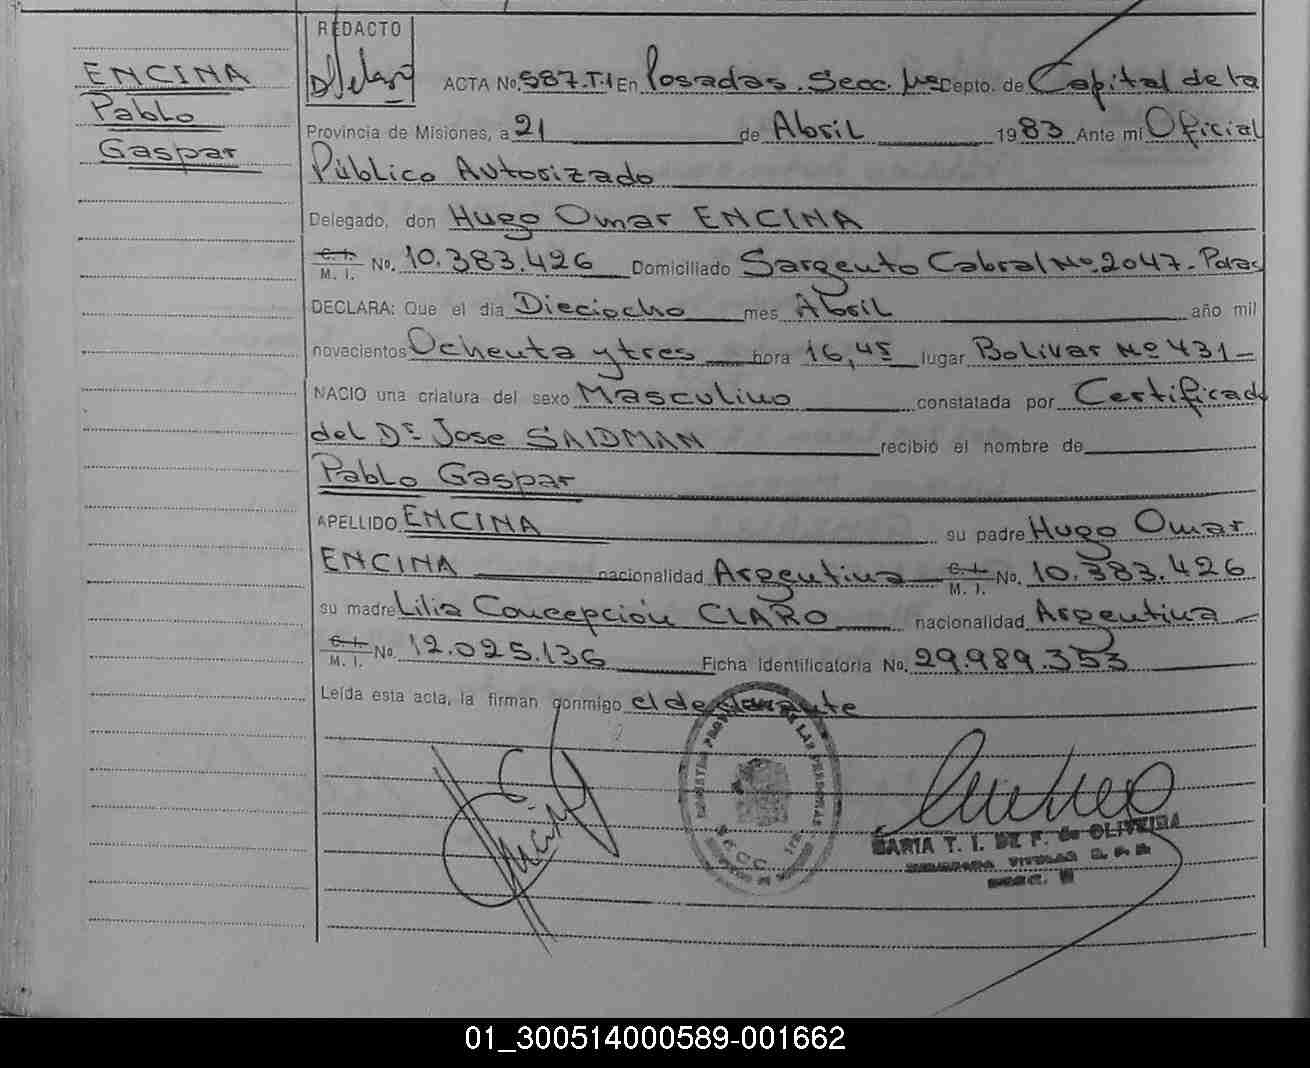 ENCINA
Pablo
Gaspar
REDACTO
ACTA No. 587.T.I En Posadas. Secc. Depto. de Capital de la
Provincia de Misiones, a 21 de Abril 1983 Ante mi Oficial
Público Autorizado
Delegado, don Hugo Omar ENCINA
C. I. M. I. No. 10.383.426 Domiciliado Sargento Cabral No. 2047-
DECLARA: Que el día Dieciocho mes Abril año mil
novecientos Ochenta y tres hora 16,45 lugar Bolivar No 431-
NACIO una criatura del sexo Masculino constatada por Certificad
del Dr Jose SAIDMAN recibió el nombre de
Pablo Gaspar
APELLIDO ENCINA su padre Hugo Omar
ENCINA nacionalidad Argentina C. I. M. I. No. 10.383.426
su madre Lilia Concepción CLARO nacionalidad Argentina
C. I. M. I. No 12.025.136 Ficha Identificatoria No. 29.989.353
Leída esta acta, la firman conmigo el declarante
MARIA T. I. DE F. de OLIVEIRA
01_300514000589-001662